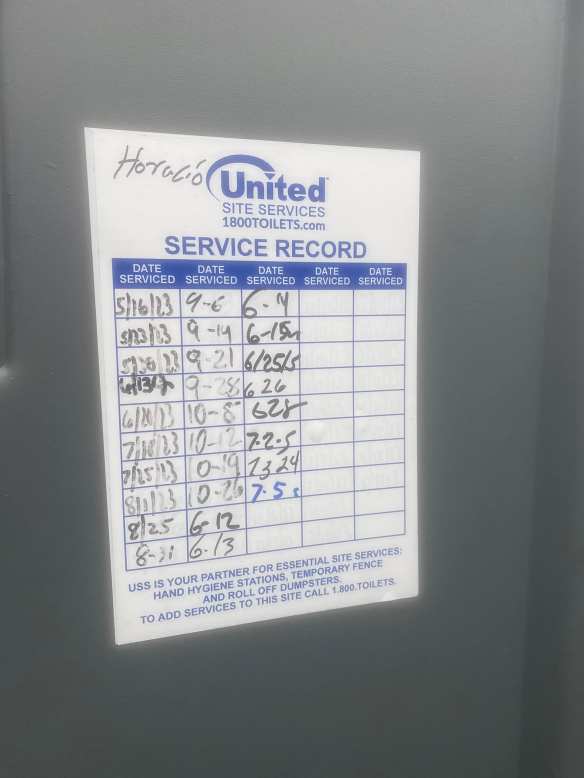 Horacio
United
SITE SERVICES
1800TOILETS.com
SERVICE RECORD
DATE SERVICED DATE SERVICED DATE SERVICED DATE SERVICED DATE SERVICED
5/16/23 9-6 6-
5/23/23 9-14 6-15
5/30/23 9-21 6/25/5
6/13/ 9-28 6 26
6/20/23 10-5 628
7/18/23 10-12 7-2-5
7/25/23 10-19
8/1/23 10-26 7-5
8/25 6-12
8-31 6-13
USS IS YOUR PARTNER FOR ESSENTIAL SITE SERVICES:
HAND HYGIENE STATIONS, TEMPORARY FENCE
AND ROLL OFF DUMPSTERS.
TO ADD SERVICES TO THIS SITE CALL 1.800.TOILETS.